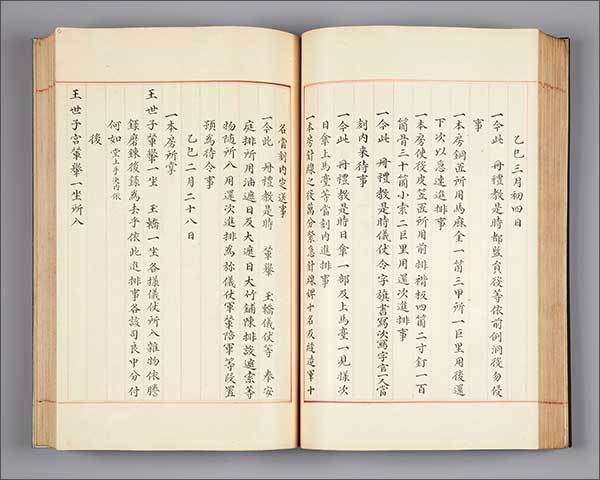 乙巳三月初四日
一今此 冊禮敎是時都監員役等依前例洞後勿侵
事
一本房銅匝所用馬麻金一箇三甲所一巨里用後還
下次以急速進排事
一本房使後皮笠匝所用前排褙板四箇二寸釘一百
箇骨三十箇小索二巨里用還次進排事
一今此 冊禮敎是時儀仗令字旗書寫次寫字官一人當
刻內來待事
一今此 冊禮敎是時日傘一部及上馬臺一見樣次
日傘上馬臺等當刻內進排事
一本房針線之役萬分緊急針線婢十名及縫造軍十
名當刻內定送事
一今此 冊禮敎是時 輦轝 玉轎儀仗等 奉安
庭排所用油遮日及大遮日大竹鋪陳排設遮索等
物隨所入用還次進排爲旀儀仗軍輦陪軍等段置
預爲待令事
乙巳二月二十八日
一本房所掌
王世子輦轝一坐 玉轎一坐各樣儀仗所入雜物依謄
錄磨鍊後錄爲去乎依此進排事各該司良中分付
何如 堂上手決內依
後
王世子宮輦轝一坐所入